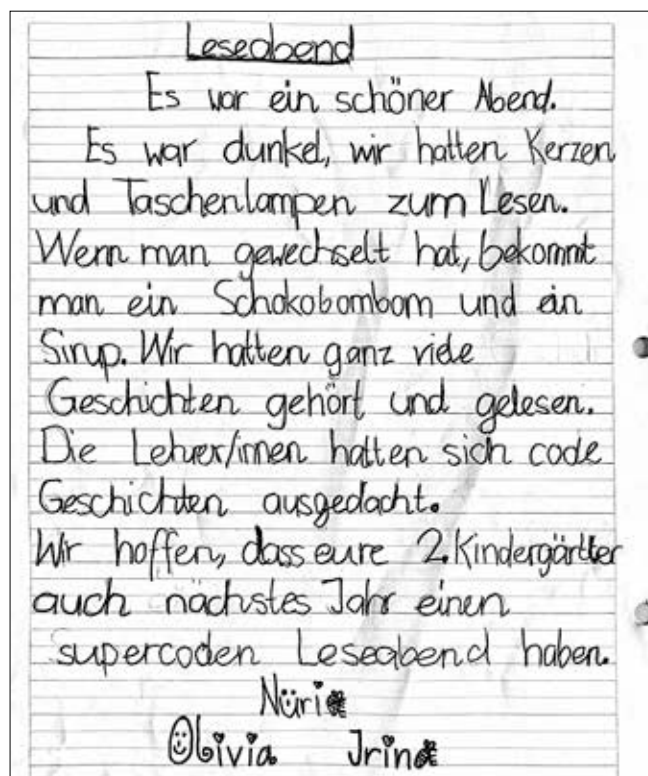 Leseabend
Es war ein schöner Abend.
Es war dunkel, wir hatten Kerzen
und Taschenlampen zum Lesen.
Wenn man gewechselt hat, bekommt
man ein Schokobombom und ein
Sirup. Wir hatten ganz viele
Geschichten gehört und gelesen.
Die Lehrer/innen hatten sich coole
Geschichten ausgedacht.
Wir hoffen, dass eure 2. Kindergärtler
auch nächstes Jahr einen
supercoolen Leseabend haben.
Nüria
Olivia Irina